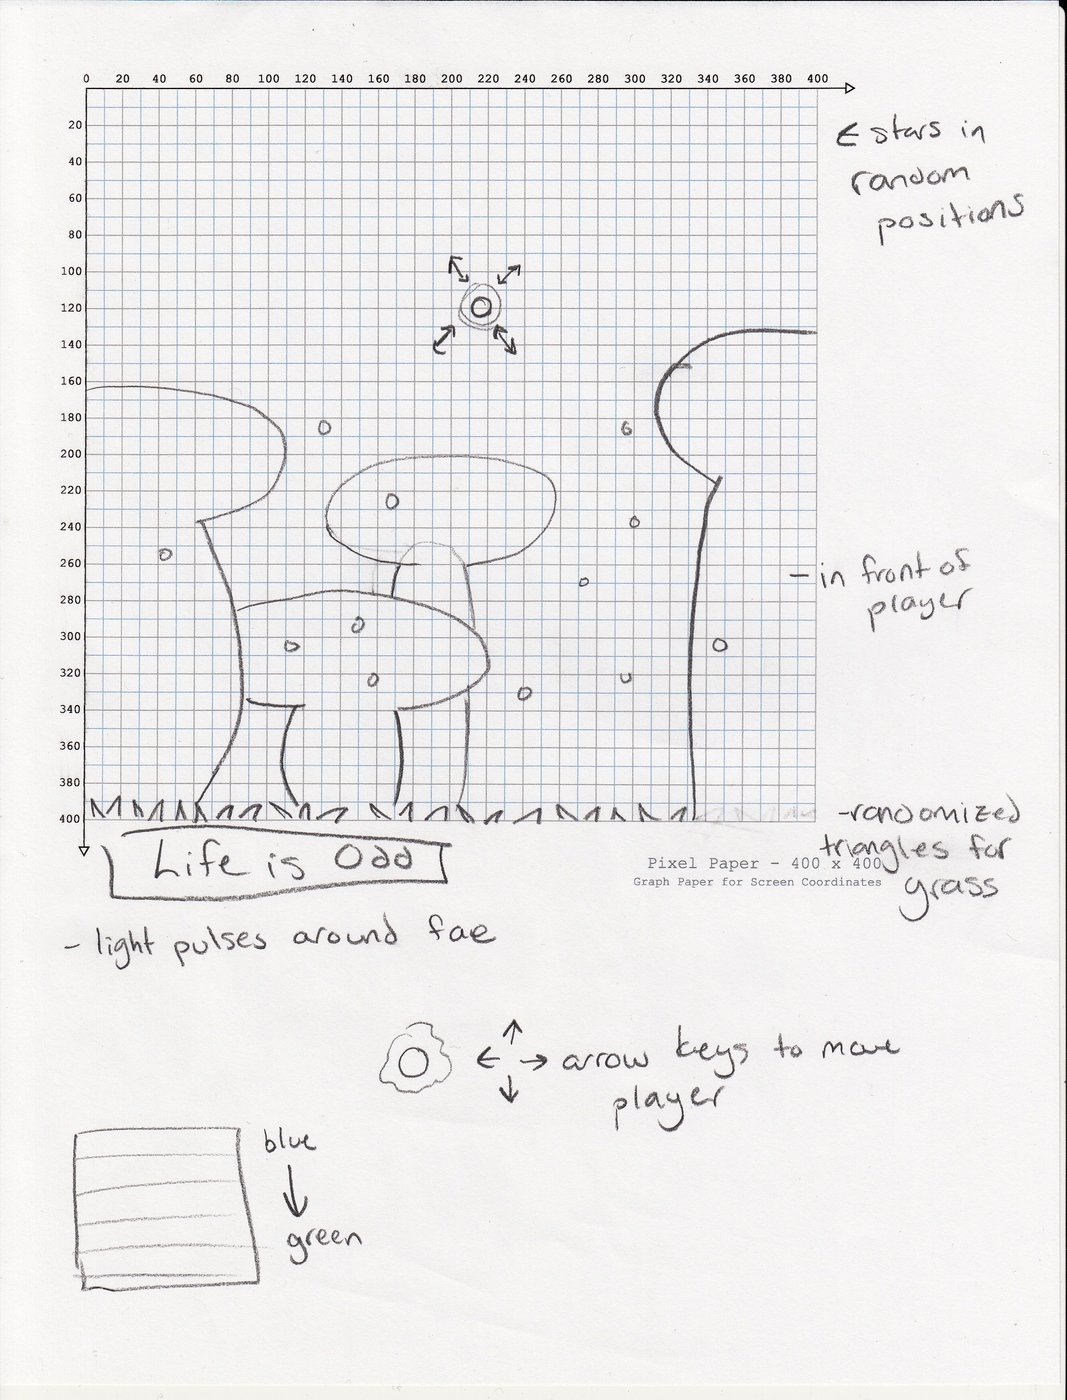 0 20 40 60 80 100 120 140 160 180 200 220 240 260 280 300 320 340 360 380 400
20
← stars in
40
random
60
positions
80
100
120
140
160
180
200
220
240
260
- in front of
280
player
300
320
340
360
380
400
-randomized
triangles for
grass
Life is Odd
Pixel Paper - 400 x 400
Graph Paper for Screen Coordinates
- light pulses around fae
↑
← → arrow keys to move
↓
player
blue
↓
green